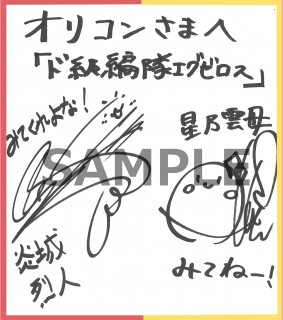 オリコンさまへ
「ド級編隊エグゼロス」
みてくれよな！
星乃雲母
SAMPLE
炎城
烈人
みてねー！